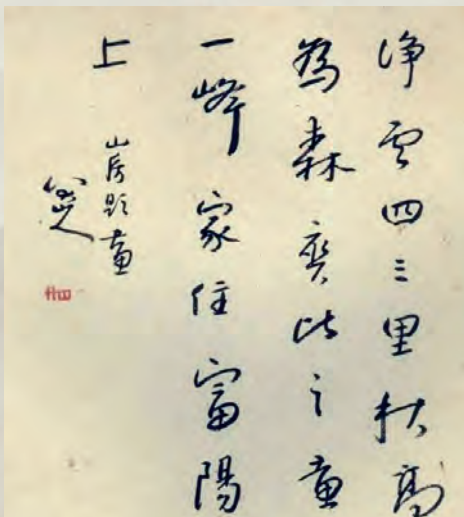 净雲四三里秋高
為森爽比之畫
一峰家住富陽
上
山房題畫
八大山人